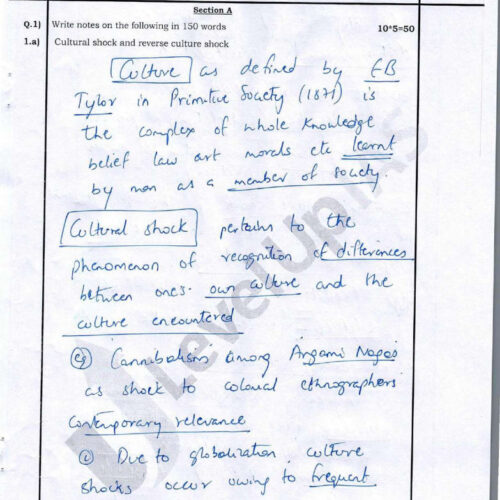 Section A
Q.1) Write notes on the following in 150 words 10*5=50
1.a) Cultural shock and reverse culture shock
Culture as defined by EB
Tylor in Primitive Society (1871) is
the complex of whole knowledge
belief law art morals etc learnt
by man as a member of society.
Cultural shock pertains to the
phenomenon of recognition of differences
between ones own culture and the
culture encountered
eg Cannibalism among Angami Nagas
as shock to colonial ethnographers
Contemporary relevance
(i) Due to globalization, culture
shocks occur owing to frequent
LevelUp IAS